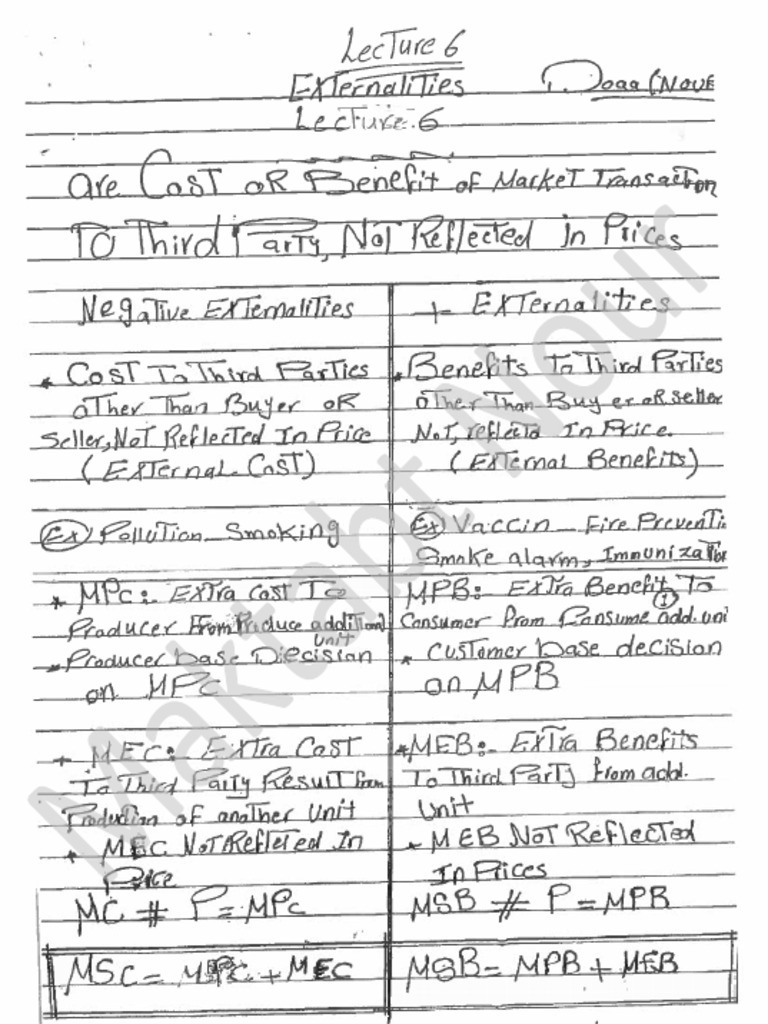 Lecture 6
Externalities
Lecture 6
D. Doaa (Nour
are Cost or Benefit of Market Transaction
To Third Party, Not Reflected in Prices
Negative Externalities
* Cost To Third Parties
other Than Buyer or
Seller, Not Reflected In Price
(External Cost)
(Ex) Pollution Smoking
* MPC: Extra Cost To
Producer From Produce additional
unit
* Producer base Diecision
on MPC
+ MEC: Extra Cost
To Third Party Result from
Production of another Unit
* MEC Not Refleted In
Price
MC ≠ P = MPC
MSC = MPC + MEC
+ Externalities
* Benefits To Third Parties
other Than Buyer or seller
Not, reflectd In Price.
(External Benefits)
(Ex) Vaccin Fire Preventi
Smoke alarm, Immunization
MPB: Extra Benefit To
Consumer From Consume add. uni
①
* Customer base decision
on MPB
* MEB:- Extra Benefits
To Third Party from add.
Unit
- MEB Not Reflected
In Prices
MSB ≠ P = MPB
MSB = MPB + MEB
Maktabt Nour